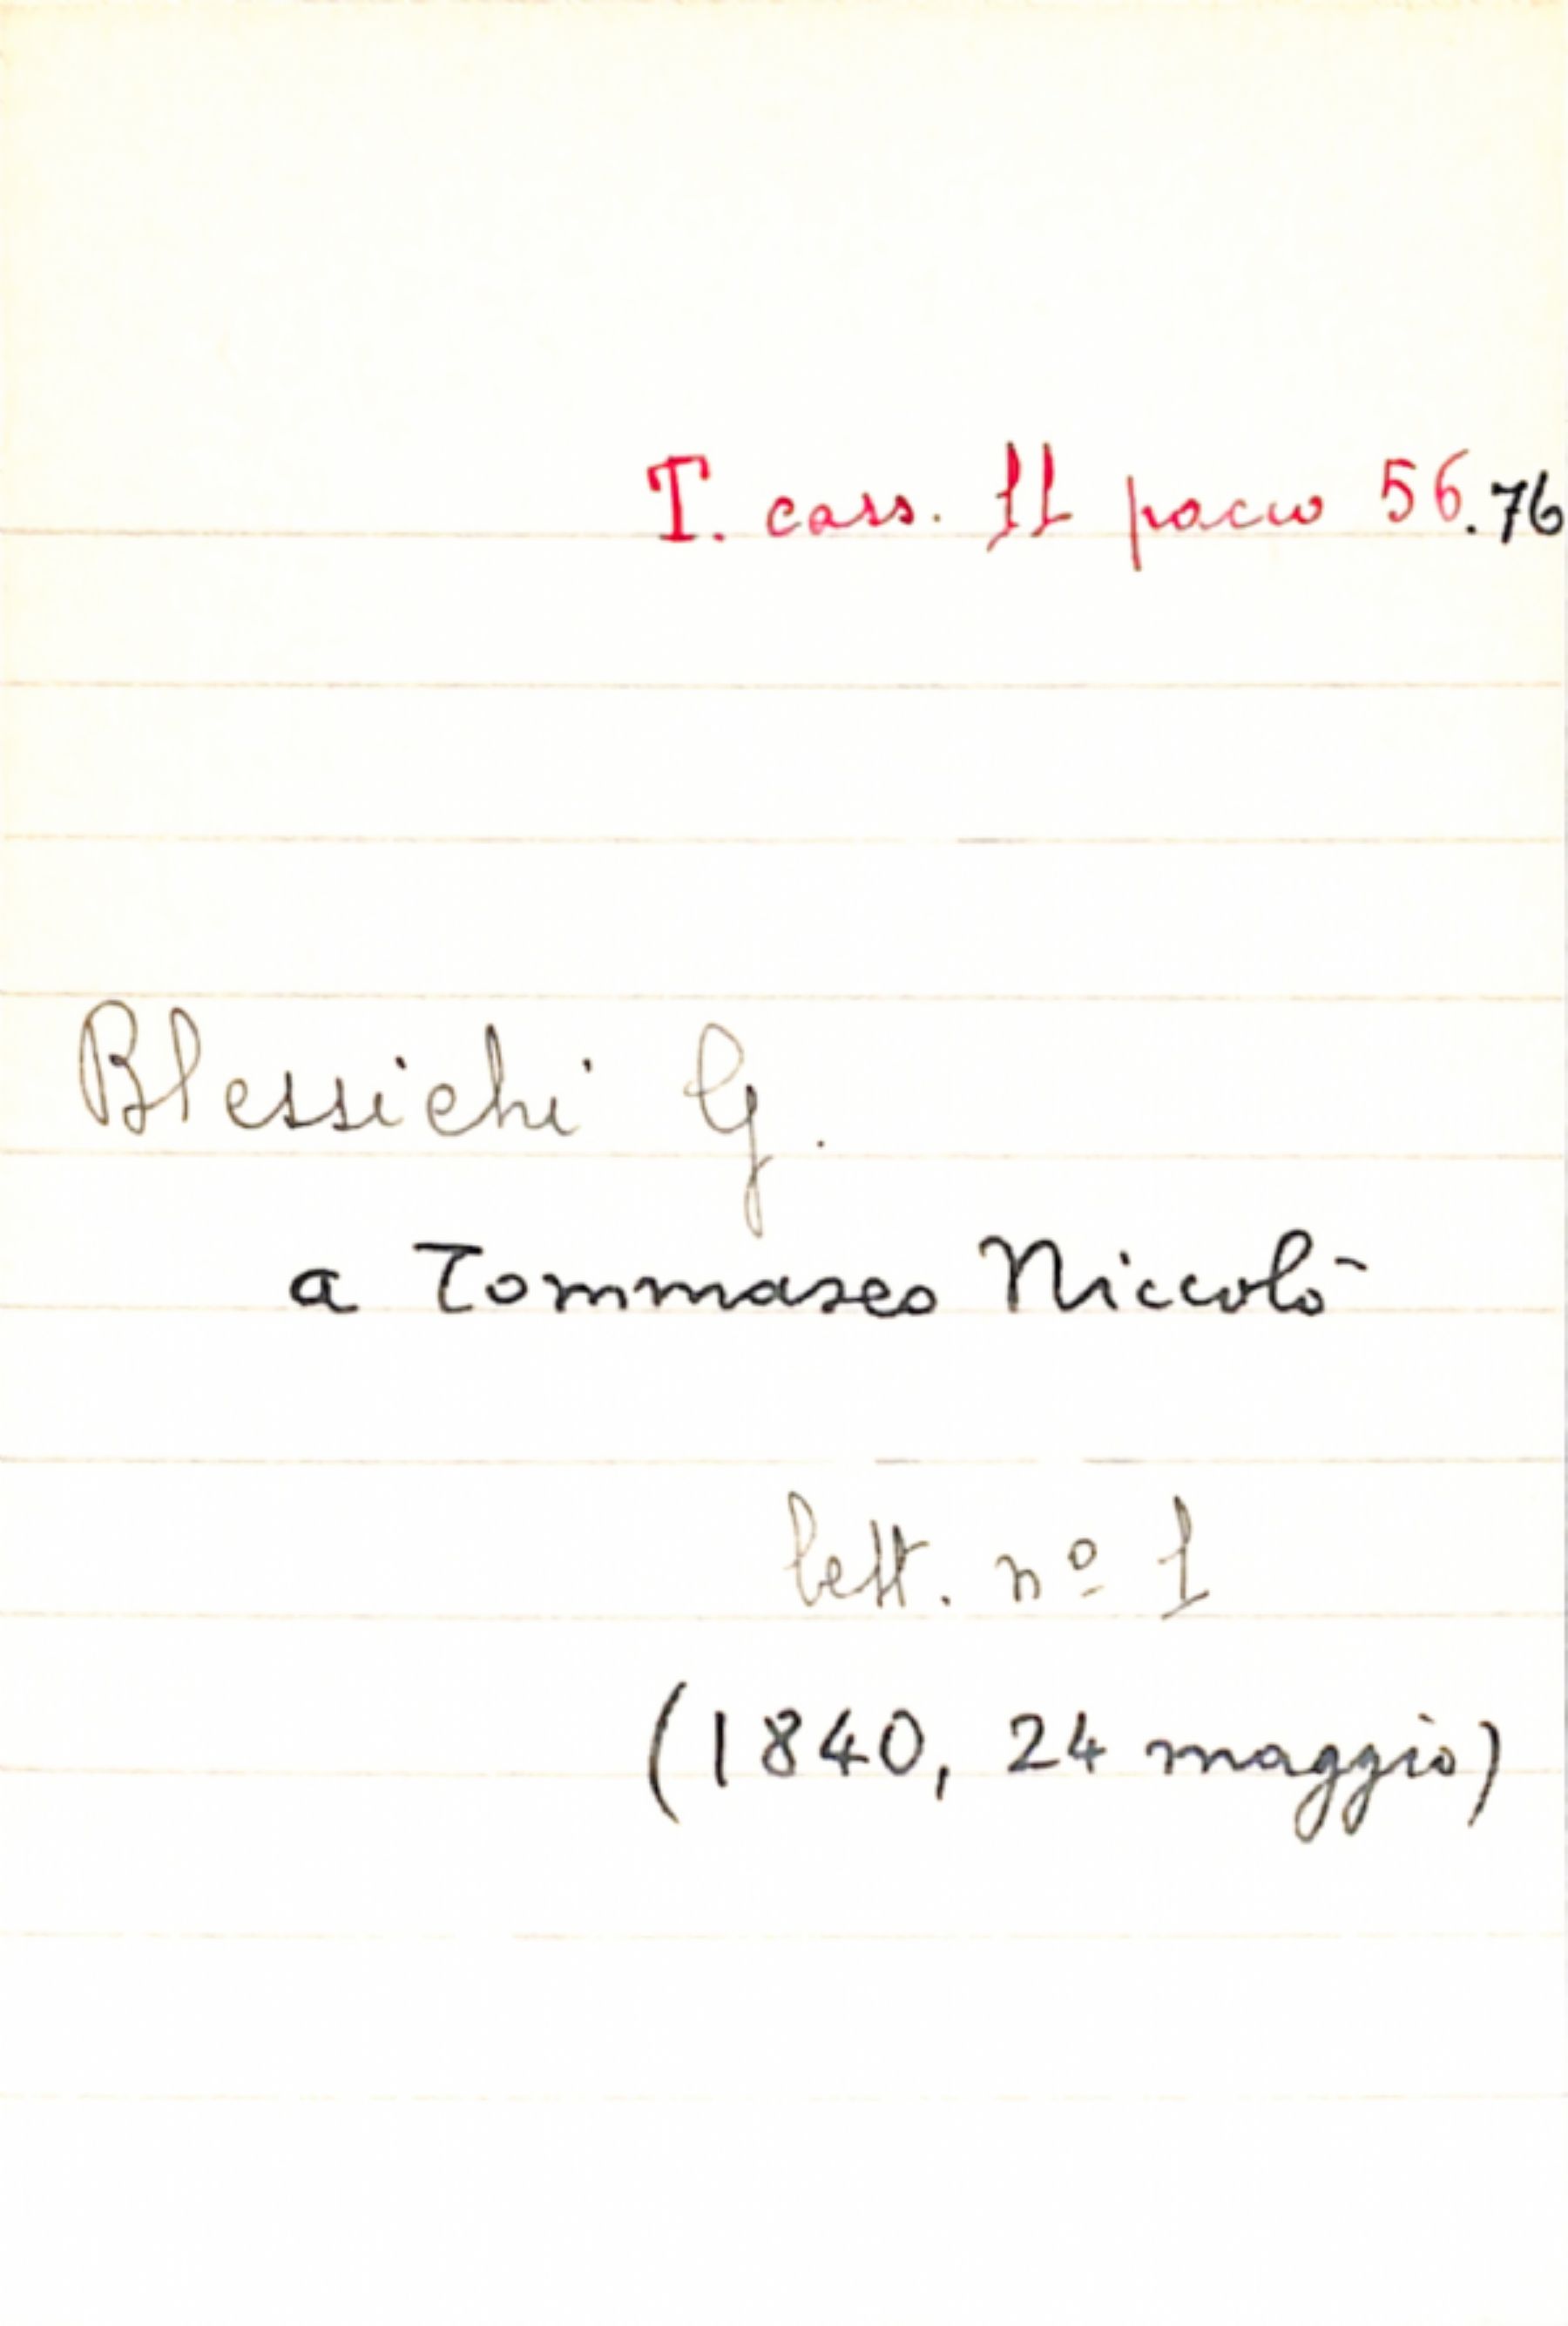 T. cass. 11 pacco 56.76
Blessichi G.
a Tommaseo Niccolò
lett. nº 1
(1840, 24 maggio)